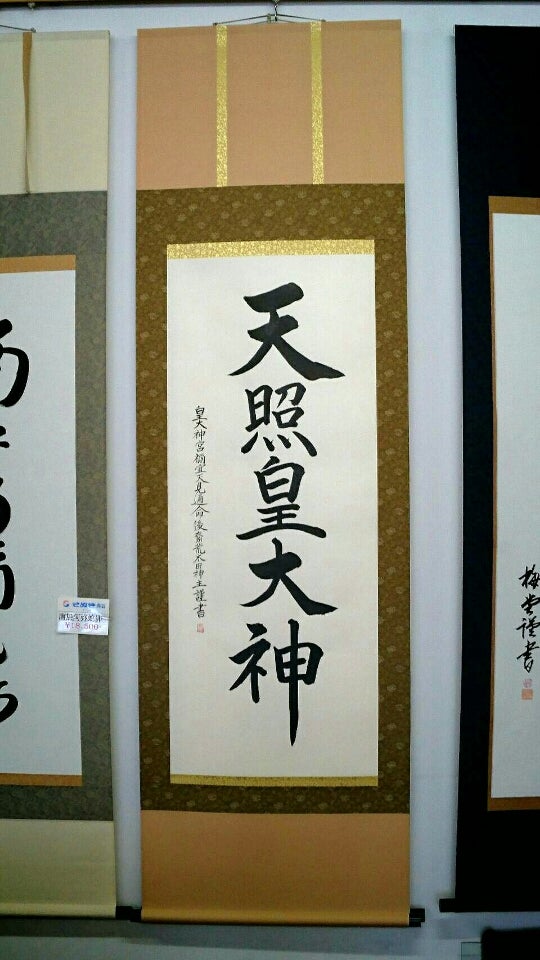 天照皇大神
皇大神宮禰宜天見通命後裔荒木田神主謹書
梅堂謹書
¥18,500